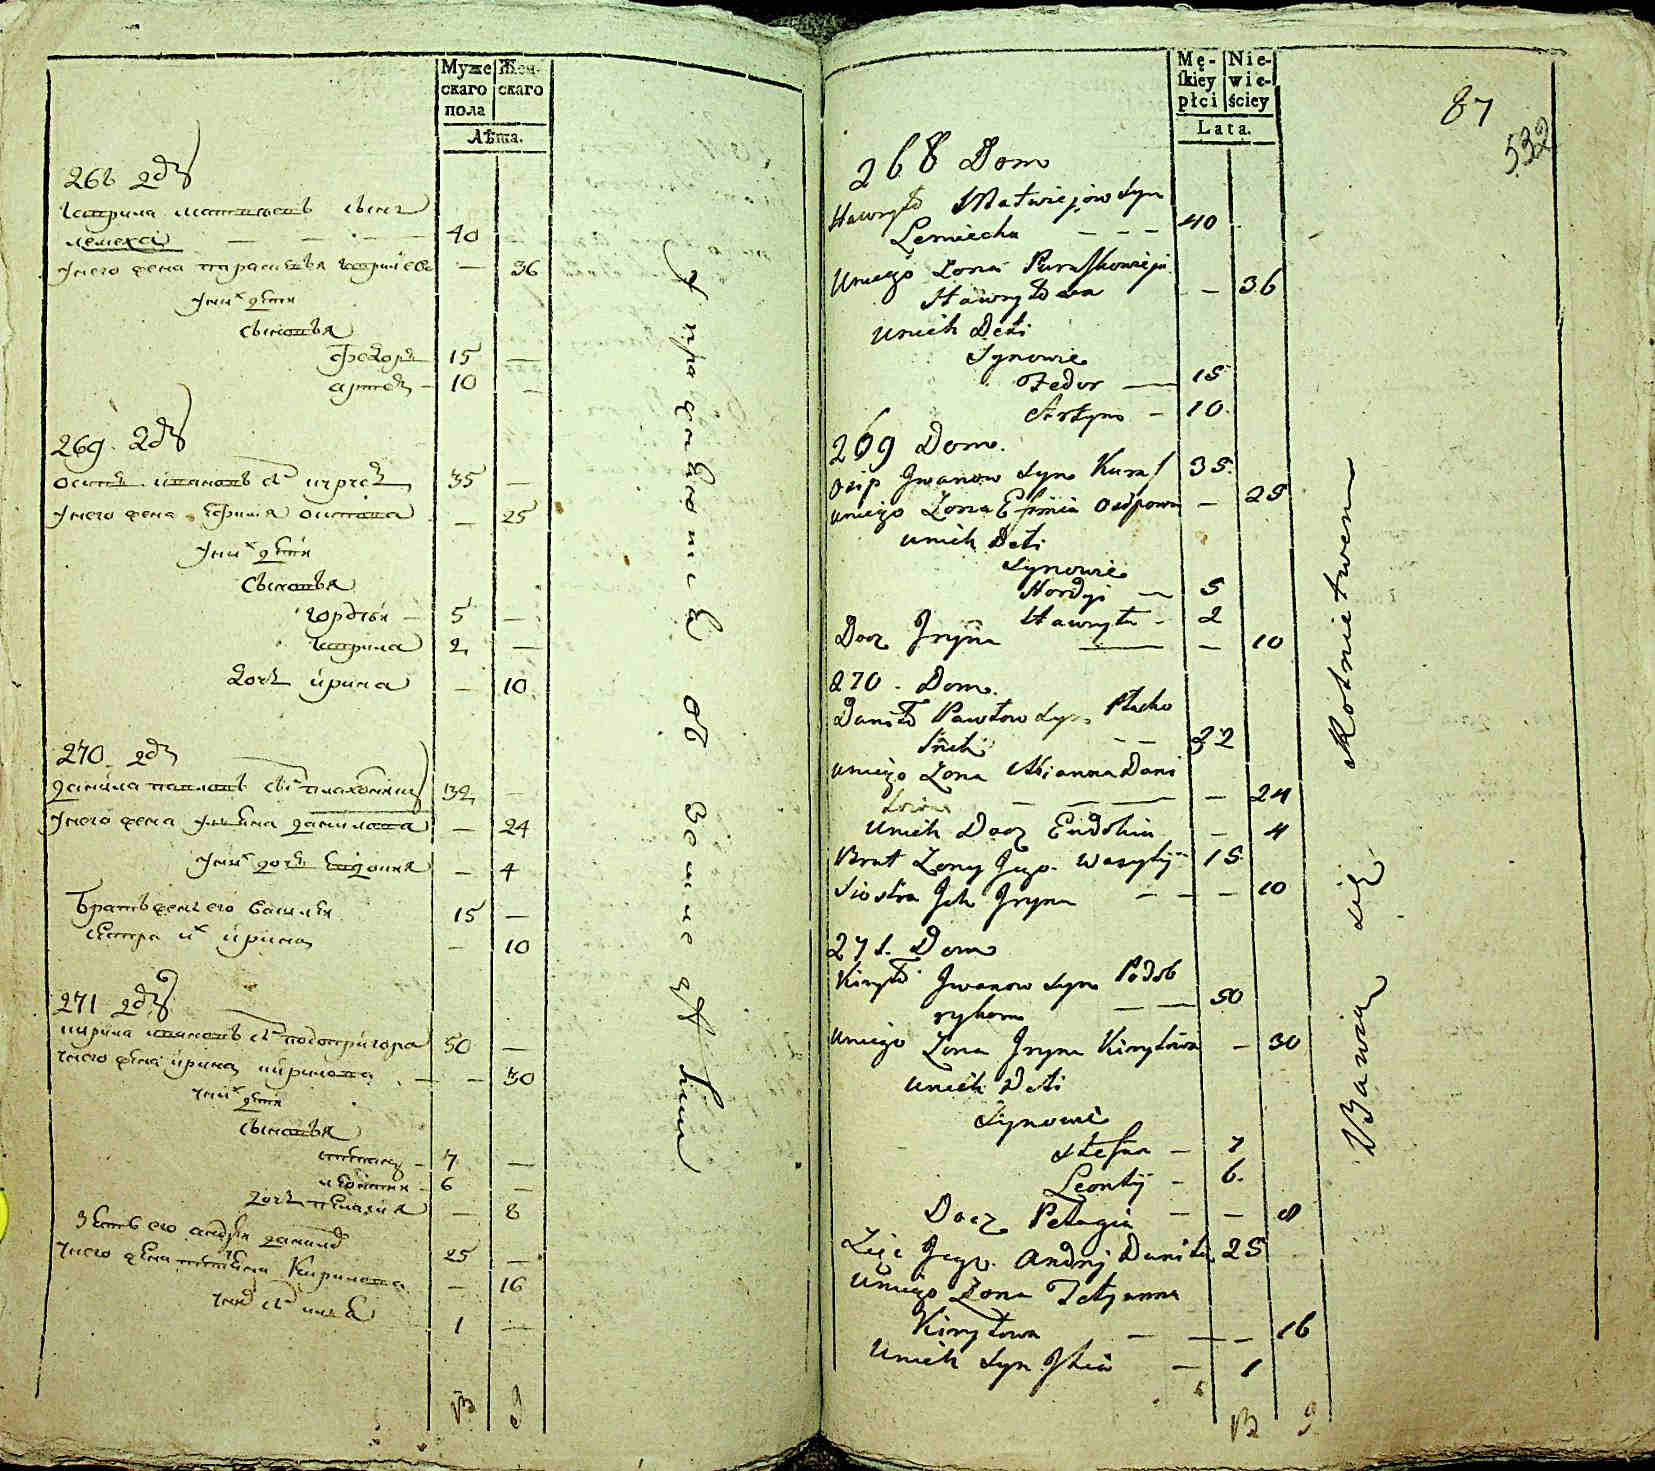 Муже
скаго
пола
Жен-
скаго
Лѣта.
268 двр
гаврила матвѣевъ сынъ
лемеха — — — 40 —
у него жена параскѣвя гаврилова — 36
у них дѣти
сыновья
федоръ 15 —
артем — 10 —
269. двр
осипъ ивановъ с: 35 —
у него жена ефимия осипова — 25
у них дѣти
сыновья
гордѣй — 5 —
гаврила 2 —
дочь ирина — 10
270 двр
данила павловъ сы: 32 —
у него жена ульяна данилова — 24
у них дочь евдокия — 4
братъ жены его василей 15 —
сестра их ирина — 10
271 двр
кирила ивановъ с: подопригора 50 —
у него жена ирина кирилова — — 30
у них дѣти
сыновья
степан — 7 —
леонтий — 6 —
дочь пелагия — 8
зять его андрей данилов 25 —
у него жена татьяна Кирилова — 16
у них сы: илья
1 —
упражняются в земледелии
Mę-
ſkiey
płci
Nie-
wie-
ściey
Lata.
87
532
268 Dom
Hawryło Matwiejow Syn
Lemiecha — — — 40
Uniego Zona Paraſkowieja
Hawryłowa — 36
Unich Deti
Synowie
Fedor — 15
Artym — 10
269 Dom.
Osip Jwanow Syn 35.
Uniego Zona Efimia Osipowa — 25
Unich Deti
Synowie
Hordyi — 5
Hawryła — 2
Docz Jryna — — 10
270. Dom.
Daniło Pawłow Syn Płacho
— — 32
Uniego Zona Ulianna Dani
łowa — — — — 24
Unich Docz Eudokia — 4
Brat Zony Jego. Wasylij — 15
Siostra Jch Jryna — — — 10
271. Dom
Kiryło Jwanow Syn Podob
ryhora — — 50
Uniego Zona Jryna Kiryłowa — 30
Unich Deti
Synowie
Stefan — 7
Leontij — 6.
Docz Pelagia — — 8
Zięć Jego. Andrij Daniło 25
Uniego Zona Tetjanna
Kiryłowa — — — 16
Unich Syn Jlia — 1
Bawią się Rolnictwem